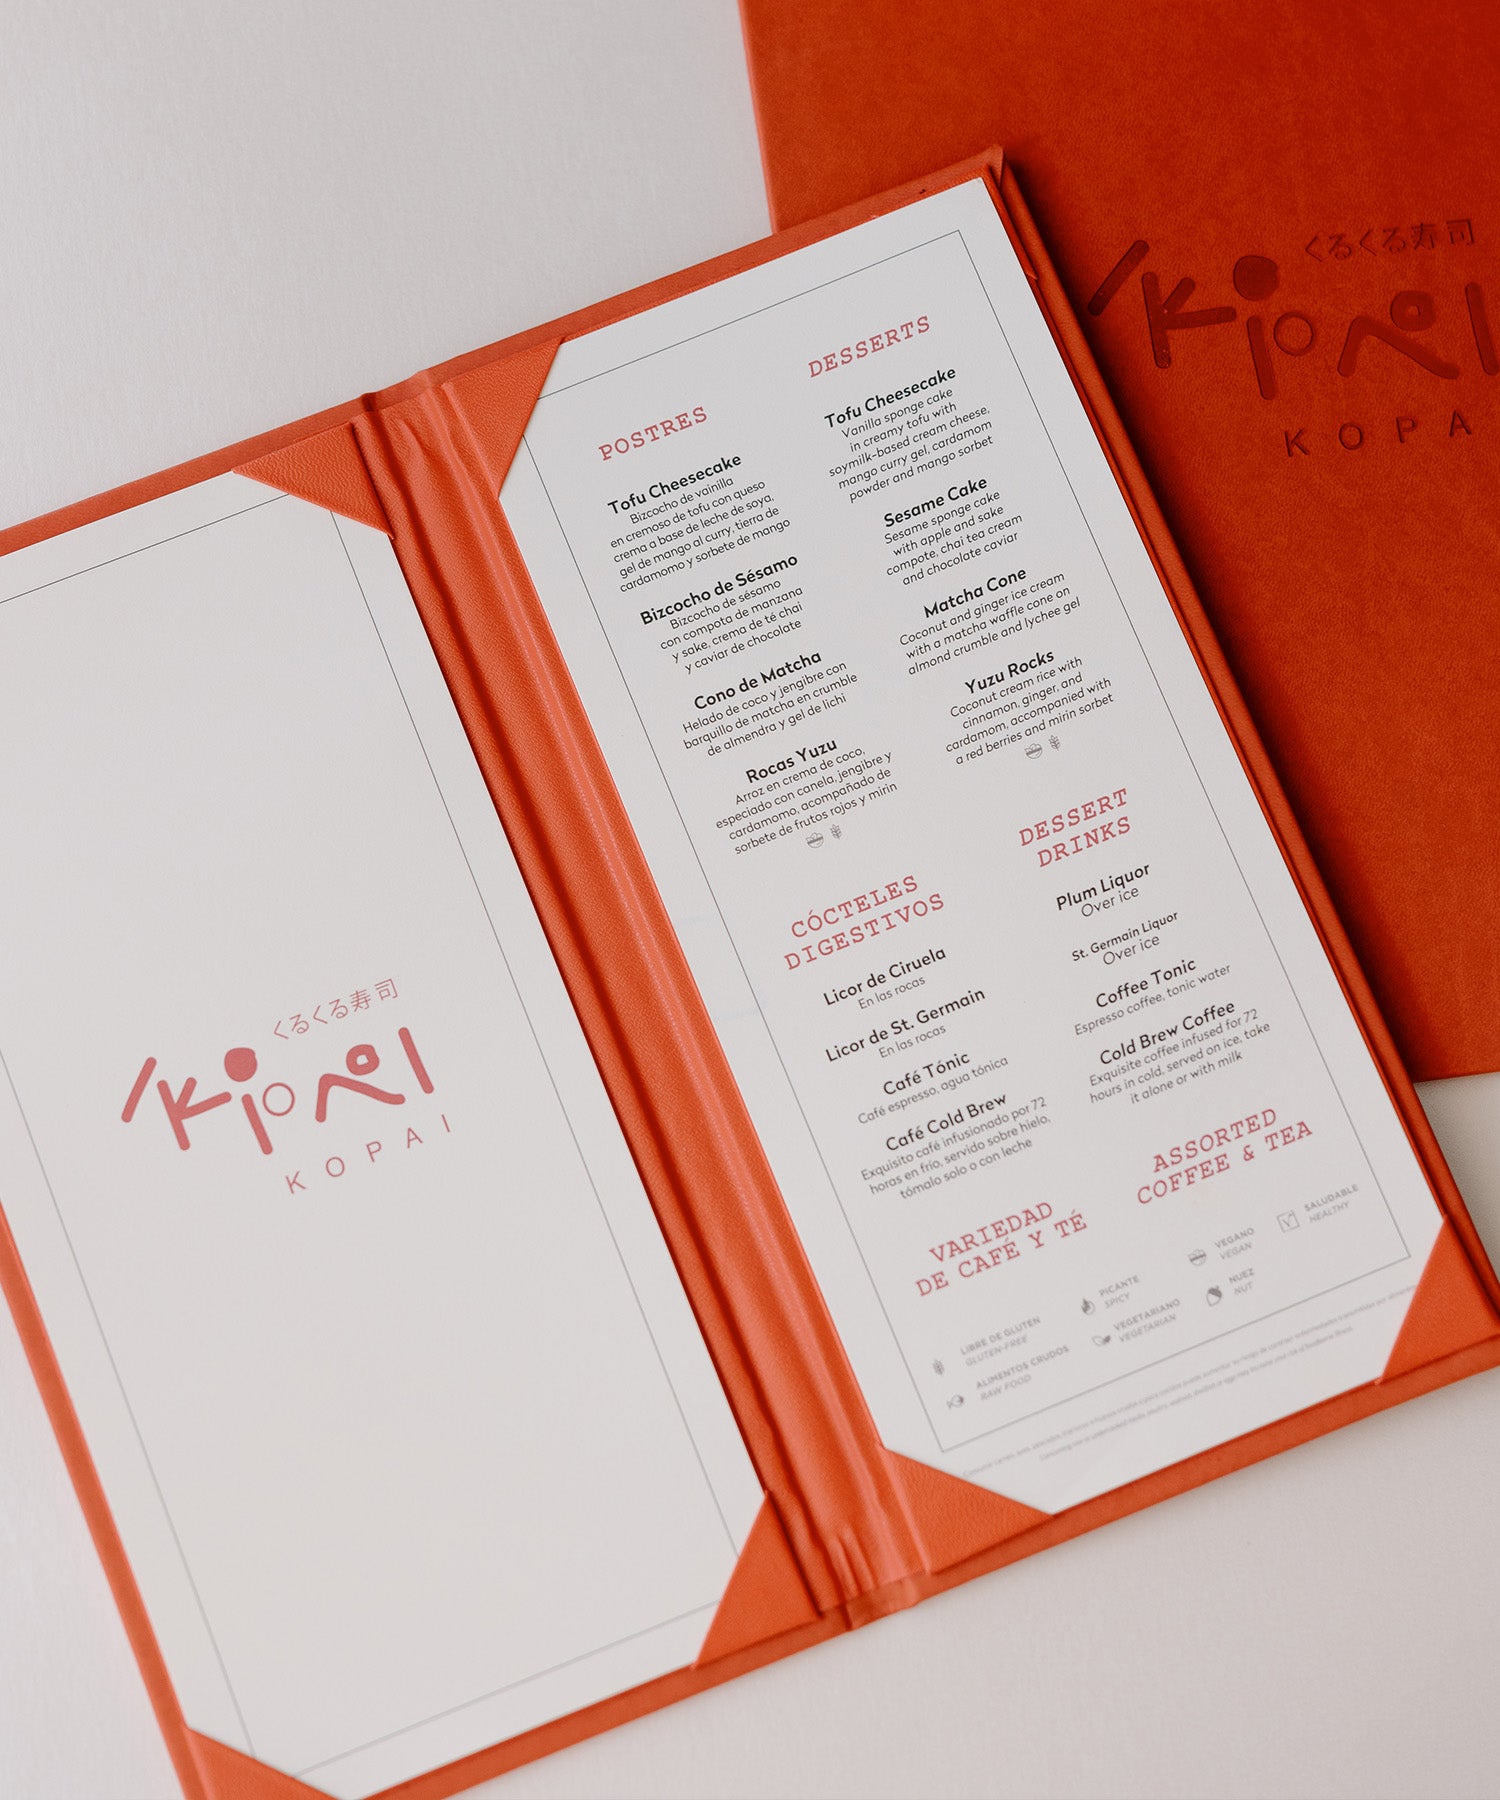 くるくる寿司
KOPAI
POSTRES
Tofu Cheesecake
Bizcocho de vainilla
en cremoso de tofu con queso
crema a base de leche de soya,
gel de mango al curry, tierra de
cardamomo y sorbete de mango
Bizcocho de Sésamo
Bizcocho de sésamo
con compota de manzana
y sake, crema de té chai
y caviar de chocolate
Cono de Matcha
Helado de coco y jengibre con
barquillo de matcha en crumble
de almendra y gel de lichi
Rocas Yuzu
Arroz en crema de coco,
especiado con canela, jengibre y
cardamomo, acompañado de
sorbete de frutos rojos y mirin
CÓCTELES
DIGESTIVOS
Licor de Ciruela
En las rocas
Licor de St. Germain
En las rocas
Café Tónic
Café espresso, agua tónica
Café Cold Brew
Exquisito café infusionado por 72
horas en frío, servido sobre hielo,
tómalo solo o con leche
VARIEDAD
DE CAFÉ Y TÉ
DESSERTS
Tofu Cheesecake
Vanilla sponge cake
in creamy tofu with
soymilk-based cream cheese,
mango curry gel, cardamom
powder and mango sorbet
Sesame Cake
Sesame sponge cake
with apple and sake
compote, chai tea cream
and chocolate caviar
Matcha Cone
Coconut and ginger ice cream
with a matcha waffle cone on
almond crumble and lychee gel
Yuzu Rocks
Coconut cream rice with
cinnamon, ginger, and
cardamom, accompanied with
a red berries and mirin sorbet
DESSERT
DRINKS
Plum Liquor
Over ice
St. Germain Liquor
Over ice
Coffee Tonic
Espresso coffee, tonic water
Cold Brew Coffee
Exquisite coffee infused for 72
hours in cold, served on ice, take
it alone or with milk
ASSORTED
COFFEE & TEA
LIBRE DE GLUTEN
GLUTEN-FREE
PICANTE
SPICY
VEGANO
VEGAN
SALUDABLE
HEALTHY
ALIMENTOS CRUDOS
RAW FOOD
VEGETARIANO
VEGETARIAN
NUEZ
NUT
くるくる寿司
KOPA